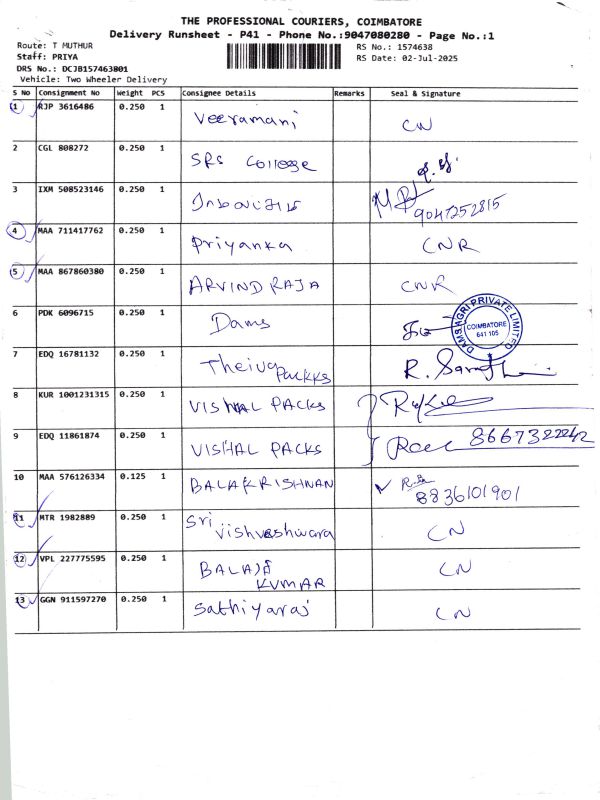 THE PROFESSIONAL COURIERS, COIMBATORE
Delivery Runsheet - P41 - Phone No.:9047080280 - Page No.:1
Route: T MUTHUR
RS No.: 1574638
Staff: PRIYA
RS Date: 02-Jul-2025
DRS No.: DCJB157463801
Vehicle: Two Wheeler Delivery
S No Consignment No Weight PCS Consignee Details Remarks Seal & Signature
1 RJP 3616486 0.250 1 Veeramani CN
2 CGL 808272 0.250 1 SRS College
3 IXM 508523146 0.250 1 9047252815
4 MAA 711417762 0.250 1 Priyanka CNR
5 MAA 867860380 0.250 1 ARVIND RAJA CNR
6 PDK 6096715 0.250 1 Dams
DAMS AGRI PRIVATE LIMITED
COIMBATORE
641 105
7 EDQ 16781132 0.250 1 Theiva
Packks
8 KUR 1001231315 0.250 1 VISHAL PACKS
9 EDQ 11861874 0.250 1 VISHAL PACKS
10 MAA 576126334 0.125 1 BALAKRISHNAN
8836101901
11 MTR 1982889 0.250 1 Sri
Vishveshwara CN
12 VPL 227775595 0.250 1 BALAJI
KUMAR CN
13 GGN 911597270 0.250 1 Sathiyaraj CN